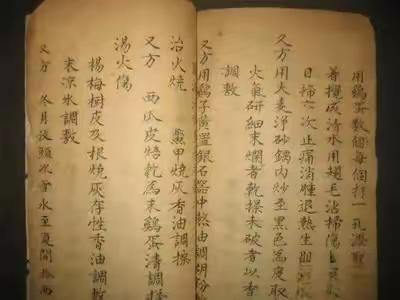 用鷄蛋数個每個打一孔濃取
着攪成清水用翅毛沾掃傷
日掃六次止痛消腫退熱生肌
又方用大麦淨砂鍋内炒至黑色為度取
火氣研細末爛者乾摻未破者以香
調敷
又方用鷄子黄置銀石器中熬油調胡粉
治火燒 鱉甲燒灰香油調搽
又方 西瓜皮焙乾為末鷄蛋清調搽
湯火傷
楊梅樹皮及根燒灰存性香油調敷
末凉水調敷
又方 冬月收
雪水至夏間搽